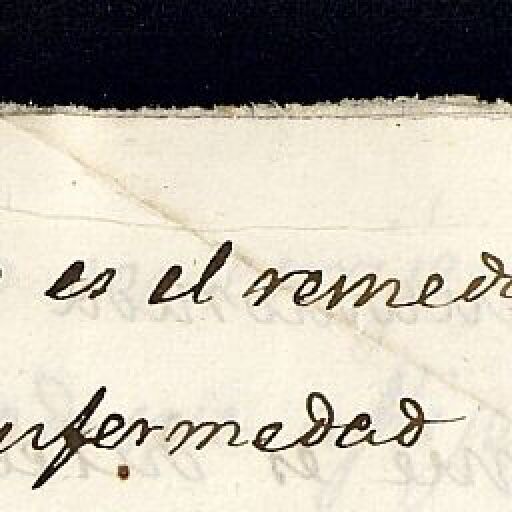 es el remed
nfermedad